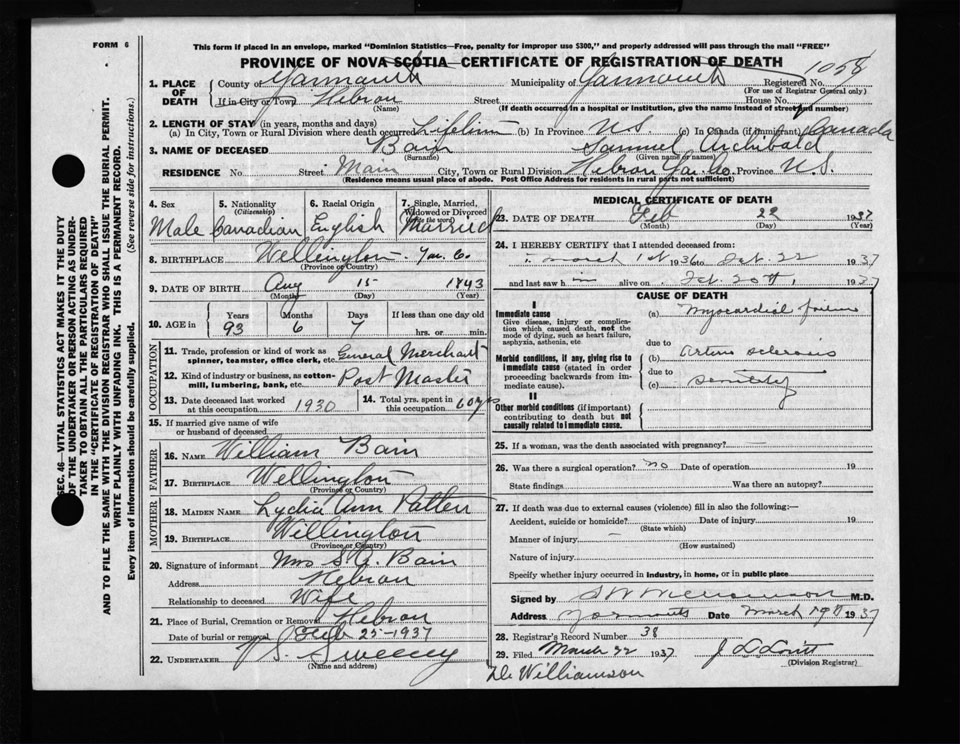 FORM 6
This form if placed in an envelope, marked "Dominion Statistics—Free, penalty for improper use $300," and properly addressed will pass through the mail "FREE"
PROVINCE OF NOVA SCOTIA CERTIFICATE OF REGISTRATION OF DEATH
1058
1. PLACE OF DEATH County of Yarmouth Municipality of Yarmouth Registered No.
(For use of Registrar General only)
If in City or Town Hebron Street House No.
(Name) (If death occurred in a hospital or institution, give the name instead of street and number)
2. LENGTH OF STAY (in years, months and days)
(a) In City, Town or Rural Division where death occurred Lifetime (b) In Province N.S. (c) In Canada (if immigrant) Canada
3. NAME OF DECEASED Bain Samuel Archibald
(Surname) (Given name or names)
RESIDENCE No. Street Main City, Town or Rural Division Hebron Yar. Co. Province N.S.
(Residence means usual place of abode. Post Office Address for residents in rural parts not sufficient)
4. Sex 5. Nationality (Citizenship) 6. Racial Origin 7. Single, Married, Widowed or Divorced (write the word)
Male Canadian English Married
8. BIRTHPLACE Wellington Yar. Co.
(Province or Country)
9. DATE OF BIRTH Aug 15 1843
(Month) (Day) (Year)
10. AGE in Years Months Days If less than one day old
93 6 7 hrs. or min.
OCCUPATION
11. Trade, profession or kind of work as spinner, teamster, office clerk, etc. General Merchant
12. Kind of industry or business, as cotton-mill, lumbering, bank, etc. Post Master
13. Date deceased last worked at this occupation 1930 14. Total yrs. spent in this occupation 60 yrs
15. If married give name of wife or husband of deceased
FATHER
16. NAME William Bain
17. BIRTHPLACE Wellington
(Province or Country)
MOTHER
18. MAIDEN NAME Lydia Ann Patten
19. BIRTHPLACE Willington
(Province or Country)
20. Signature of informant Mrs S. A. Bain
Address Hebron
Relationship to deceased Wife
21. Place of Burial, Cremation or Removal Hebron
Date of burial or removal Feb 25-1937
22. UNDERTAKER V S. Sweeney
(Name and address)
MEDICAL CERTIFICATE OF DEATH
23. DATE OF DEATH Feb 22 1937
(Month) (Day) (Year)
24. I HEREBY CERTIFY that I attended deceased from:
march 1st 1936 to Feb. 22 1937
and last saw him alive on Feb. 20th 1937
CAUSE OF DEATH
I
Immediate cause
Give disease, injury or complication which caused death, not the mode of dying, such as heart failure, asphyxia, asthenia, etc
(a) Myocardial failure
due to
Morbid conditions, if any, giving rise to immediate cause (stated in order proceeding backwards from immediate cause).
(b) Arterio sclerosis
due to
(c) senility
II
Other morbid conditions (if important) contributing to death but not causally related to immediate cause.
25. If a woman, was the death associated with pregnancy?
26. Was there a surgical operation? no Date of operation 19
State findings Was there an autopsy?
27. If death was due to external causes (violence) fill in also the following:—
Accident, suicide or homicide? Date of injury 19
(State which)
Manner of injury
(How sustained)
Nature of injury
Specify whether injury occurred in industry, in home, or in public place
Signed by S W Williamson M.D.
Address Yarmouth Date March 19th 1937
28. Registrar's Record Number 38
29. Filed March 22 1937
(Division Registrar)
Williamson
SEC. 46—VITAL STATISTICS ACT MAKES IT THE DUTY OF THE UNDERTAKER OR PERSON ACTING AS UNDERTAKER TO OBTAIN ALL THE PARTICULARS REQUIRED IN THE "CERTIFICATE OF REGISTRATION OF DEATH" AND TO FILE THE SAME WITH THE DIVISION REGISTRAR WHO SHALL ISSUE THE BURIAL PERMIT.
WRITE PLAINLY WITH UNFADING INK. THIS IS A PERMANENT RECORD.
Every item of information should be carefully supplied. (See reverse side for instructions.)